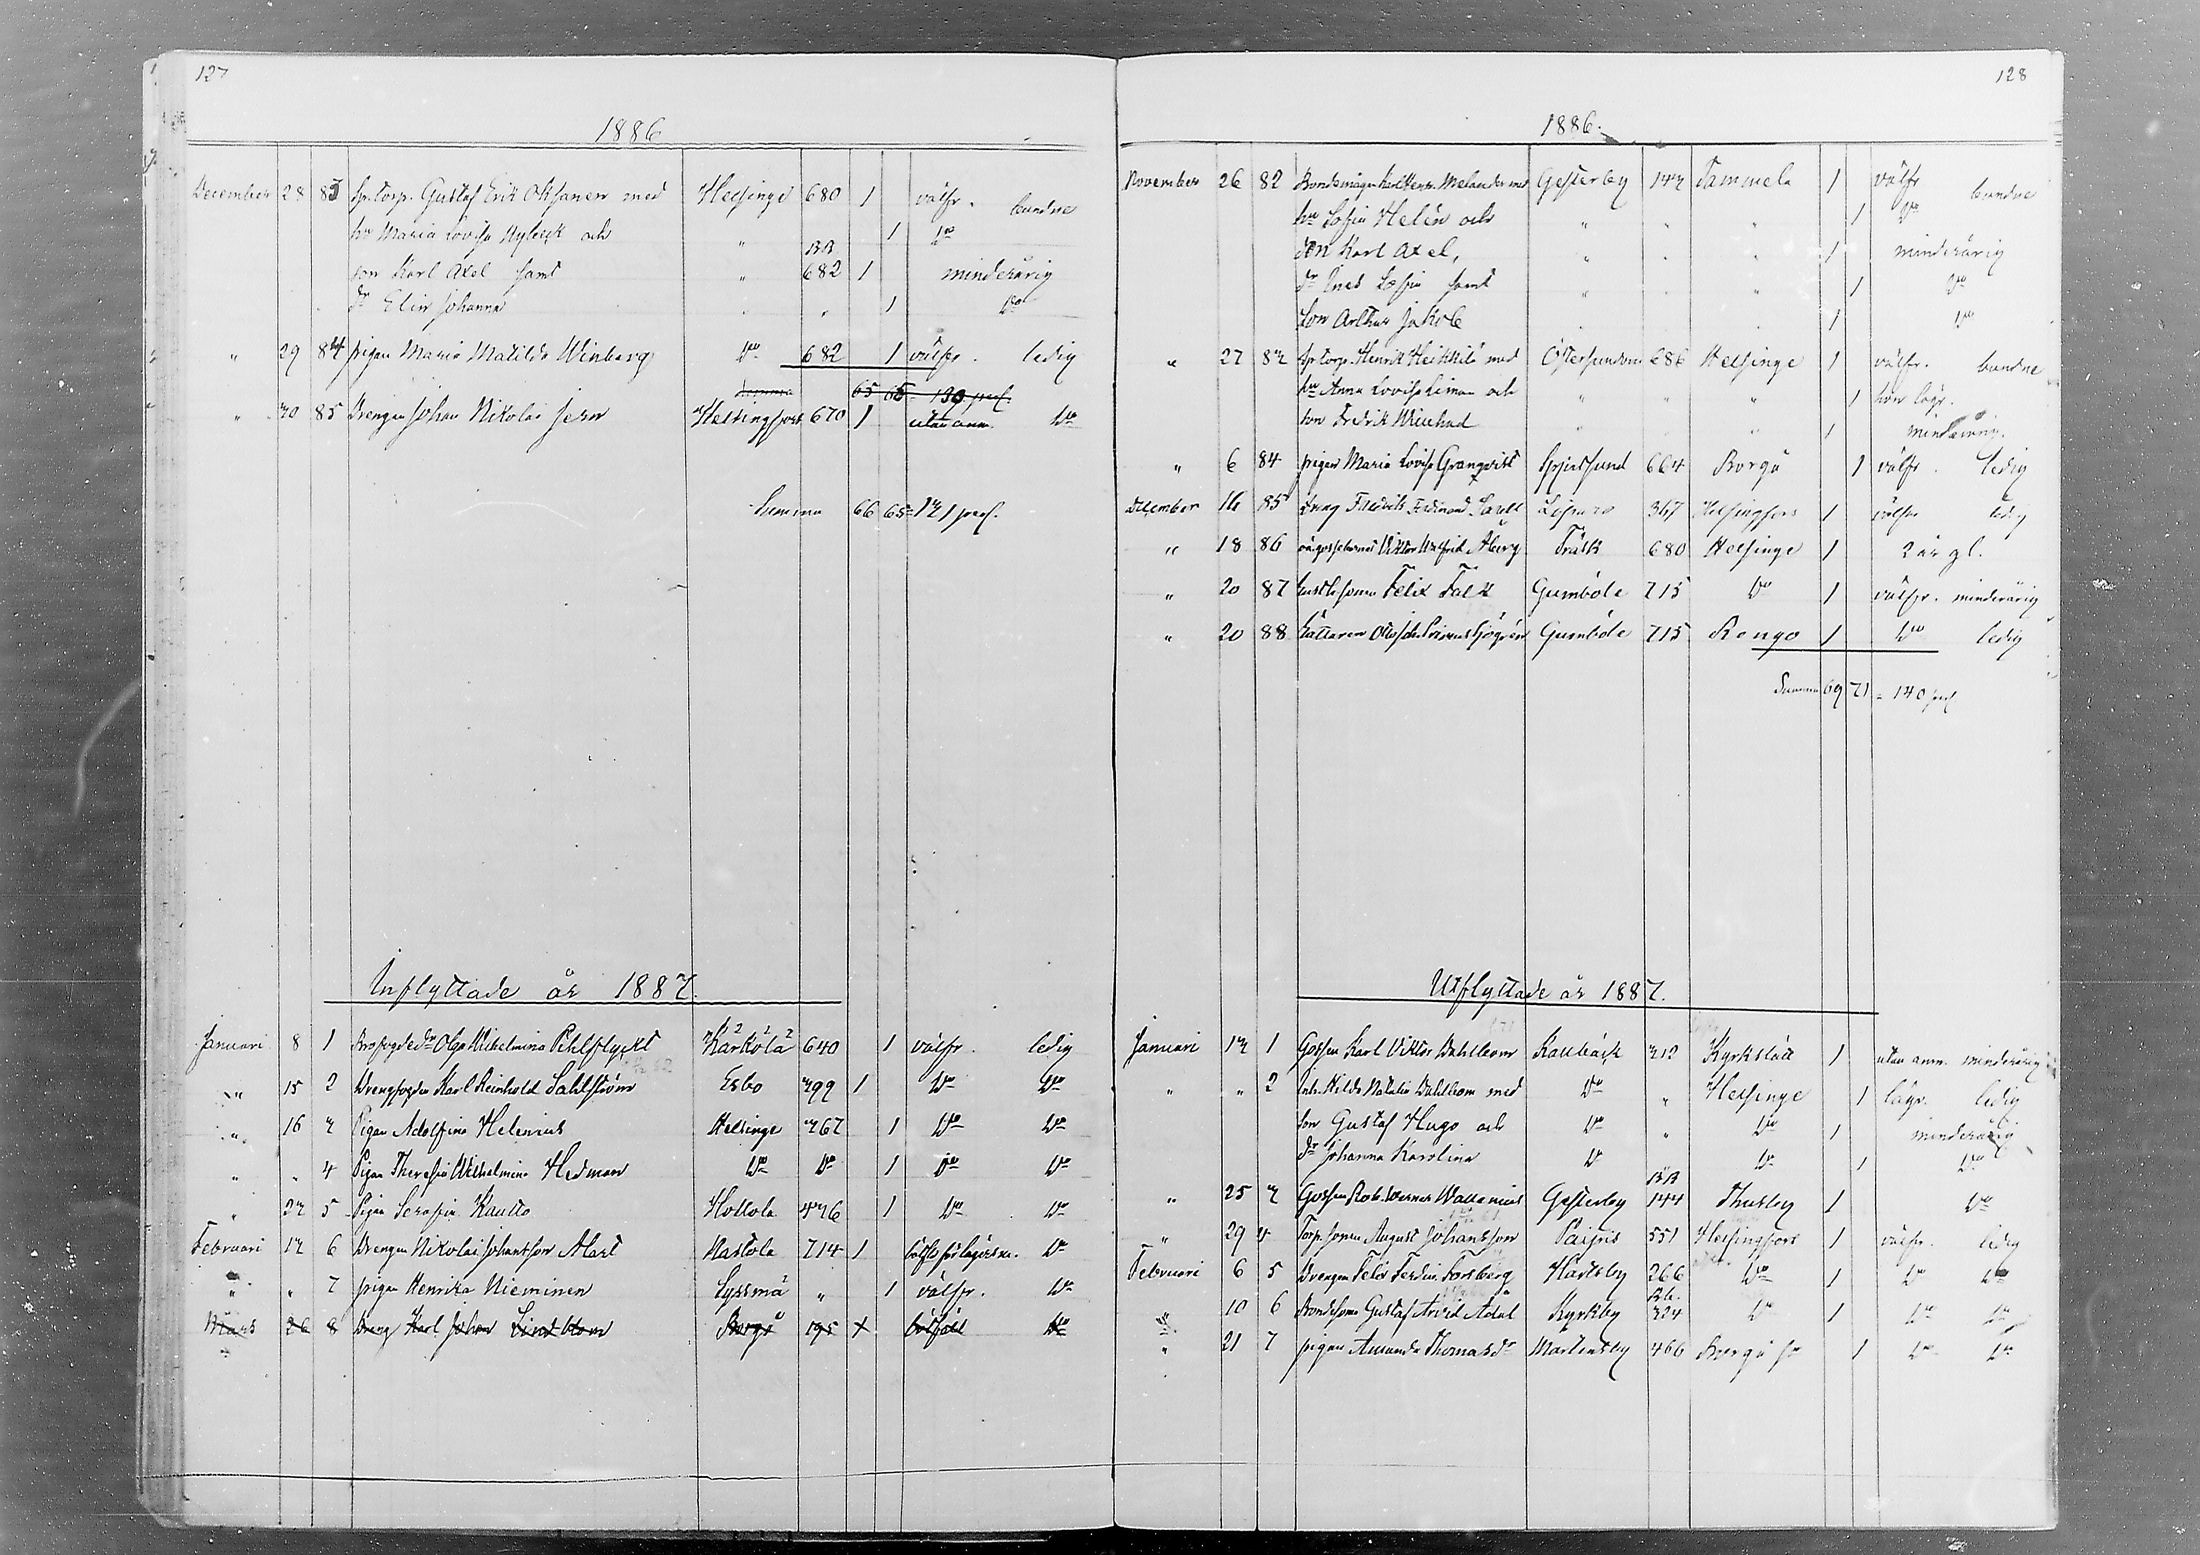 127
1886
December 28 83 Sp. torp. Gustaf Erik Oksanen med Helsinge 680 1 välfr. bundne
hu Maria Lovisa Nybeck och " 1 Do
BB
son Karl Axel samt " 682 1 minderårig
dr Elin Johanna " " 1 Do
" 29 84 pigan Maria Matilda Winberg Do 682 1 välfr. ledig
Summa 65 65 130 pers.
" 30 85 Drengen Johan Nikolai Jern Helsingfors 670 1 utan anm. Do
Summa 66 65 = 131 pers.
Inflyttade år 1887.
Januari 8 1 Olga Wilhelmina Pehlflyckt Kärkölä 640 1 välfr. ledig
" 15 2 Drengfogden Karl Reinhold Sahlström Esbo 399 1 Do Do
" 16 3 Pigan Adolfina Helenius Helsinge 367 1 Do Do
" " 4 Pigan Theresia Wilhelmina Hedman Do Do 1 Do Do
" 23 5 Pigan Serafia Kautto Hollola 436 1 Do Do
Februari 13 6 Drengen Nikolai Johansson Alart Nastola 714 1 Do
" " 7 pigan Henrika Nieminen Sysmä " 1 välfr. Do
Mars 26 8 Dreng Karl Johan Lindblom Borgå 195 Do
128
1886.
November 26 82 Melander med Gesterby 143 Tammela 1 välfr bundne
hu Sofia Helén och " " " 1 Do
son Karl Axel, " " " 1 minderårig
dr Ines Sofia samt " " " 1 Do
son Arthur Jakob " " 1 Do
" 27 83 Sp. torp. Henrik Heikkilä med Östersundom 686 Helsinge 1 välfr. bundne
hu Anna Lovisa och " " " 1 hon lägr.
son Fredrik " " 1 minderårig.
" 6 84 pigan Maria Lovisa Granqvist Spjutsund 664 Borgå 1 välfr. ledig
December 16 85 Dreng Fredrik Ferdinand 367 Helsingfors 1 välfr ledig
" 18 86 Viktor Walfrid Åberg Träsk 680 Helsinge 1 2 år gl.
" 20 87 Felix Falk Gumböle 715 Do 1 välfr. minderårig
" 20 88 Gumböle 715 Rengo 1 Do ledig
Summa 69 71 = 140 pers
Utflyttade år 1887.
Januari 13 1 Gossen Karl Viktor Dahlbom Kallbäck 212 Kyrkslätt 1 utan anm. minderårig
" " 2 Inh. Hilda Natalia Dahlbom med Do " Helsinge 1 lägr. ledig
son Gustaf Hugo och Do " Do 1 minderårig
dr Johanna Karolina Do Do 1 Do
BB
" 25 3 Gossen Rob. Werner Wallenius Gesterby 144 Thusby 1 Do
" 29 4 Torp. sonen August Johansson Paipis 551 Helsingfors 1 välfr. ledig
Februari 6 5 Drengen Felix Ferdin. Forsberg Hårtsby 266 Do 1 Do Do
Bb.
" 10 6 Bondesonen Gustaf Arvid Adal Kyrkby 324 Do 1 Do Do
" 21 7 pigan Amanda Thomasdr Martensby 466 Borgå sn 1 Do Do